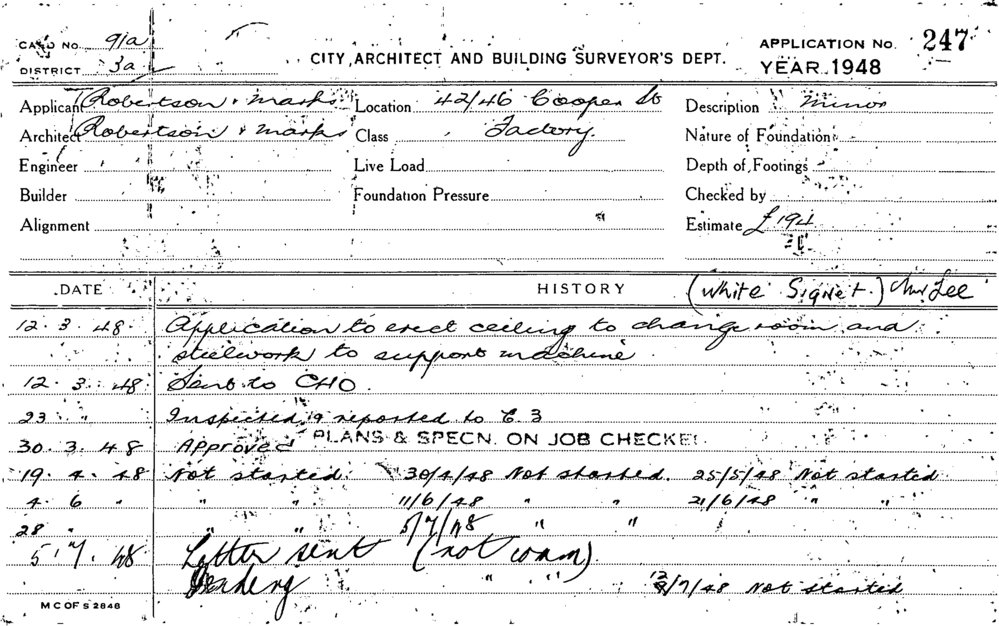 CARD NO. 91a
DISTRICT 3a
CITY ARCHITECT AND BUILDING SURVEYOR'S DEPT.
APPLICATION No. 247
YEAR 1948
Applicant Robertson & Marks Location 42/46 Cooper St Description Minor
Architect Robertson & Marks Class Factory. Nature of Foundation
Engineer Live Load Depth of Footings
Builder Foundation Pressure Checked by
Alignment Estimate £194
DATE HISTORY (White Signet.) Lee
12.3.48. Application to erect ceiling to change room and
steelwork to support machine
12.3.48 Sent to CHO.
23 " Inspected & reported to C.3
30.3.48 Approved PLANS & SPECN. ON JOB CHECKE
19.4.48 Not started. 30/4/48 Not started. 25/5/48 Not started
4.6 " " " 11/6/48 " " 21/6/48 " "
28 " " " 5/7/48 " "
5.7.48 Letter sent (not comm).
" " /7/48 Not started
M C OF S 2848